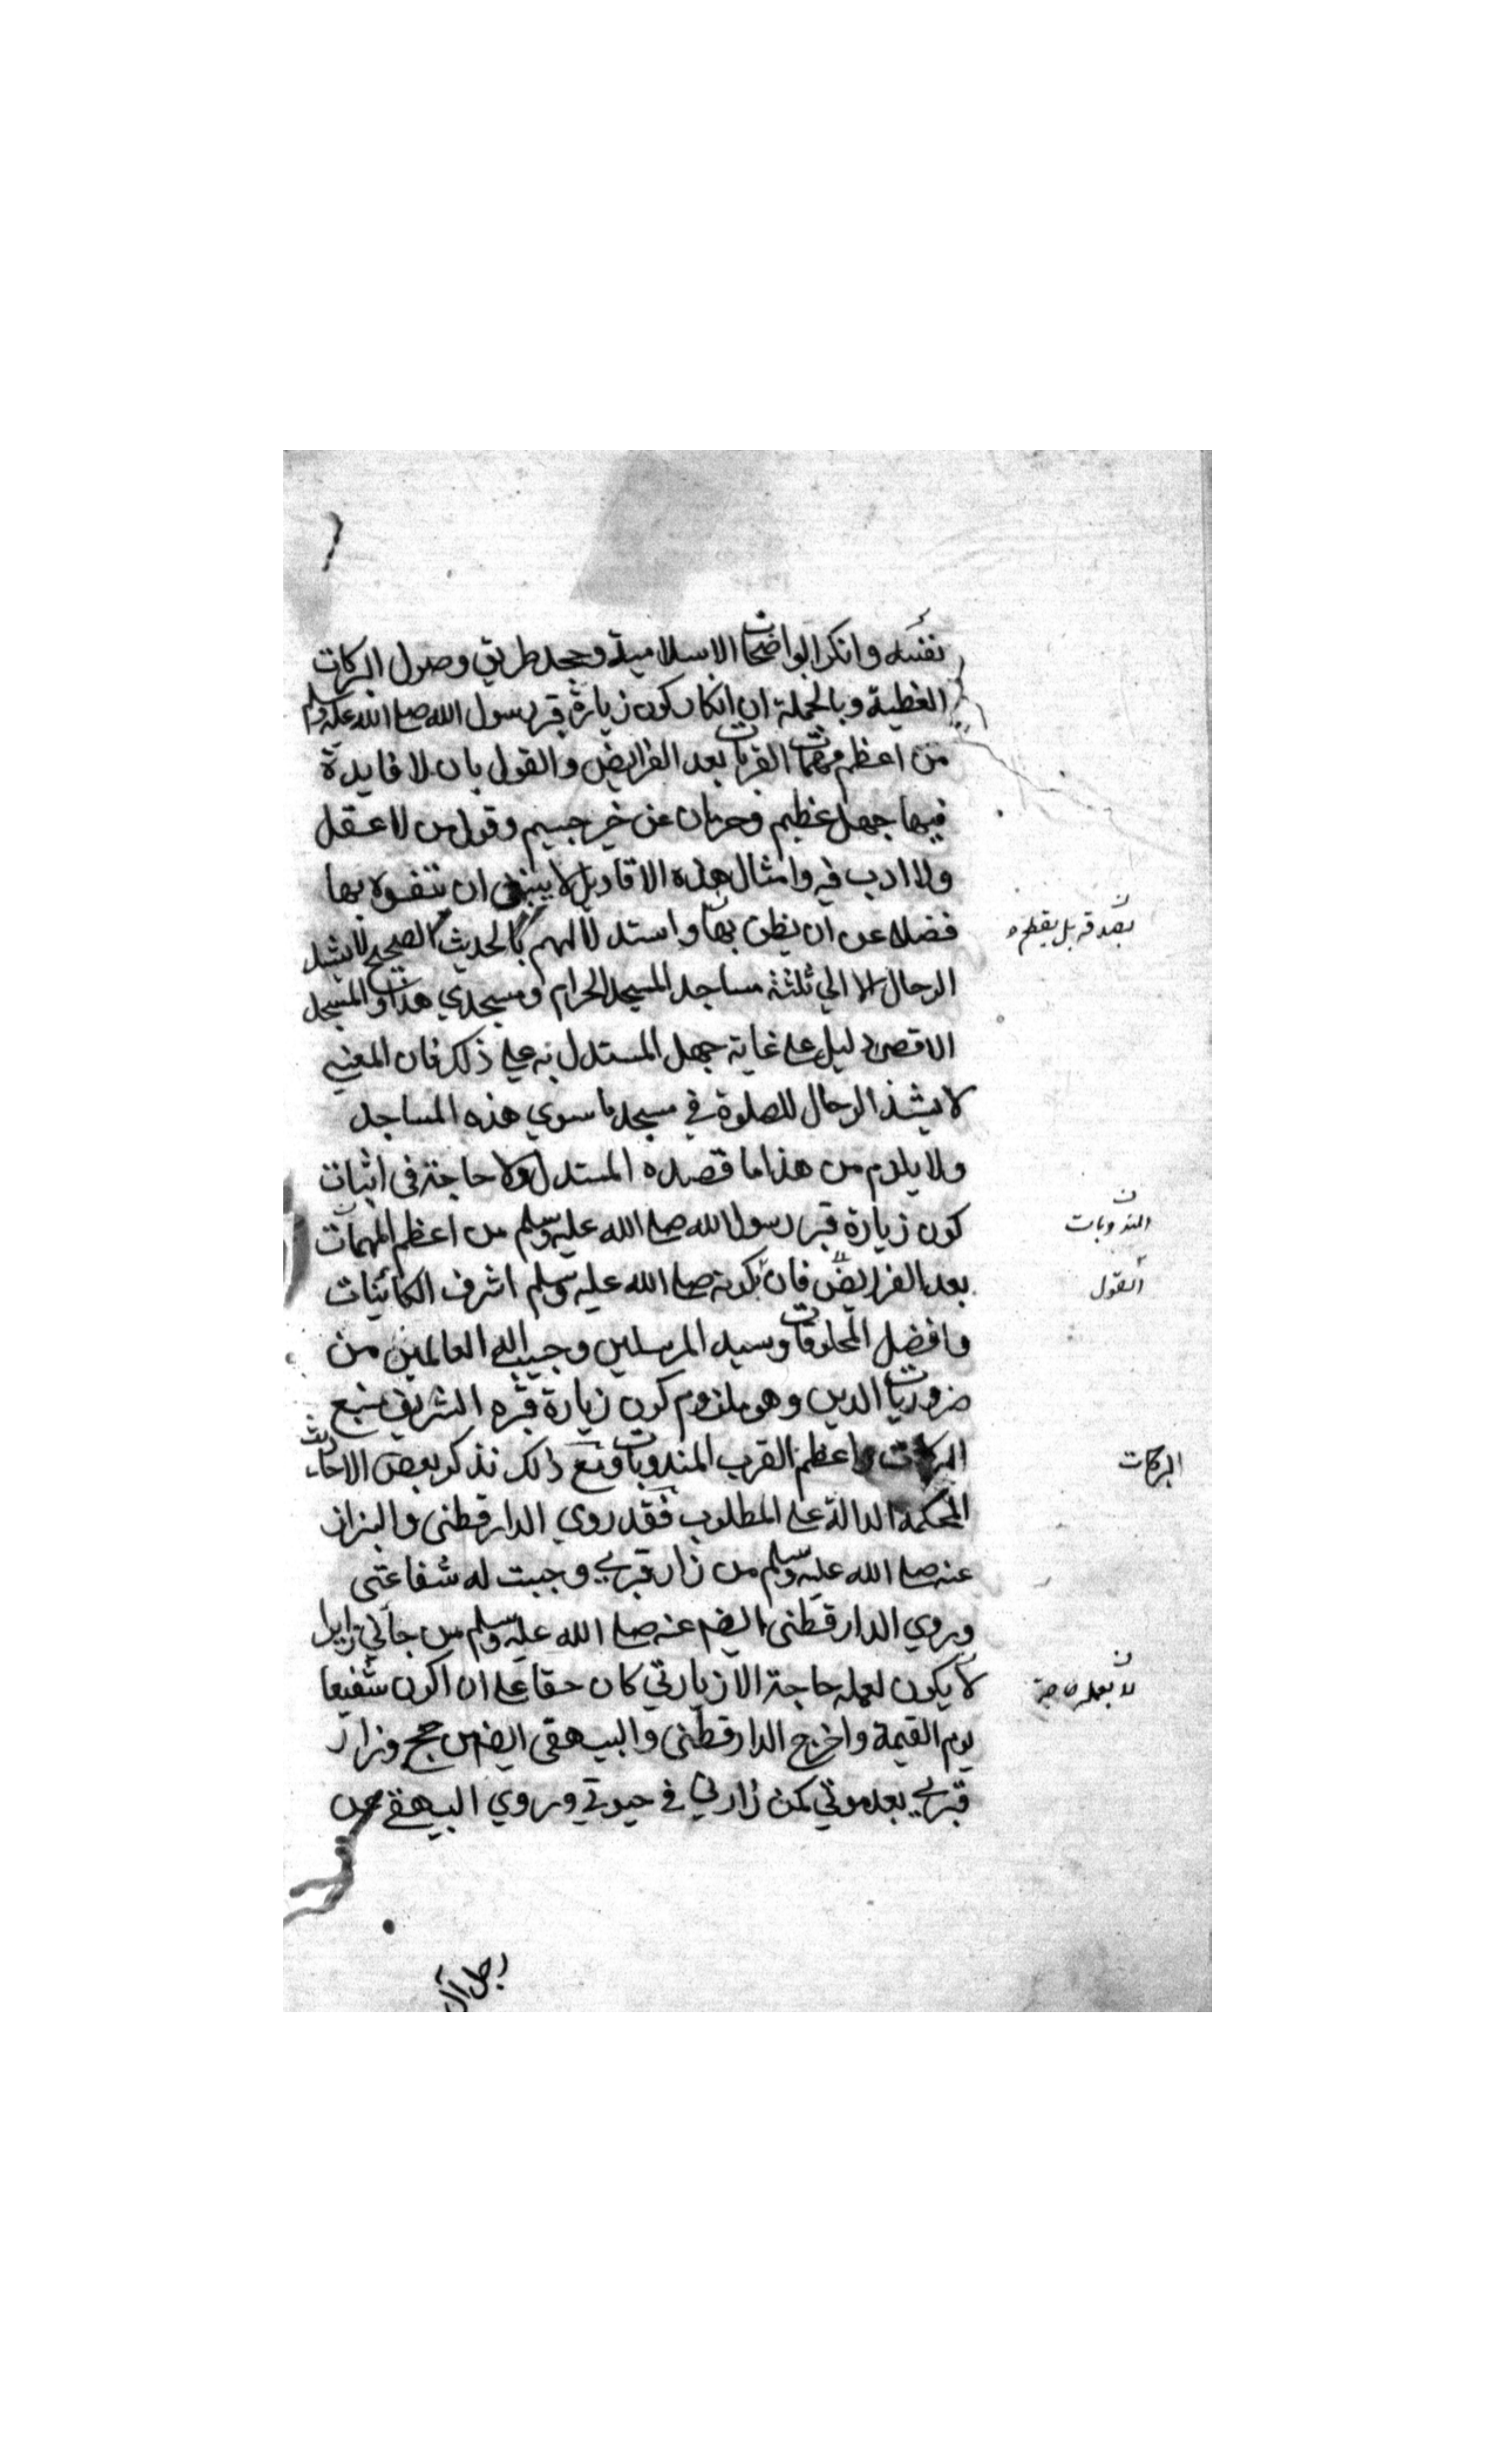 نفسه وانكر الواضحات الاسلامية وجحد طريق وصول البركات
العظيمة وبالجملة ان انكار كون زيارة قبر رسول الله صلى الله عليه وسلم
من اعظم مهمات القربات بعد الفرايض والقول بان لا فايدة
فيها جهل عظيم وحرمان عن خير جسيم وقول من لا عقل
ولا ادب فيه وامثال هذه الاقاويل لا ينبغي ان تتفوه بها
فضلا عن ان يظن بها واستدلالهم بالحديث الصحيح لا يشد
الرحال الا الي ثلثة مساجد المسجد الحرام ومسجدي هذا والمسجد
الاقصى دليل على غاية جهل المستدل به على ذلك فان المعنى
لا يشد الرحال للصلوة في مسجد ما سوي هذه المساجد
ولا يلزم من هذا ما قصده المستدل ولا حاجة في اثبات
كون زيارة قبر رسول الله صلى الله عليه وسلم من اعظم المهمات
بعد الفرايض فان بكونه صلى الله عليه وسلم اشرف الكائنات
وافضل المخلوقات وسيد المرسلين وحبيب اله العالمين من
ضروريات الدين وهو ملزوم كون زيارة قبره الشريف منبع
البركات واعظم القرب المندوبات ومع ذلك نذكر بعض الاحاديث
المحكمة الدالة على المطلوب فقد روي الدارقطنى والبزار
عنه صلى الله عليه وسلم من زار قبري وجبت له شفاعتى
وروي الدارقطنى ايضا عنه صلى الله عليه وسلم من جاني زايرا
لا يكون لعمله حاجة الا زيارتي كان حقا على ان اكون شفيعا
يوم القيمة واخرج الدارقطنى والبيهقى ايضا من حج وزار
قبري بعد موتي كمن زارني في حيوتي وروي البيهقي عن
رجل آل
ن
المندوبات
القول
البركات
ن